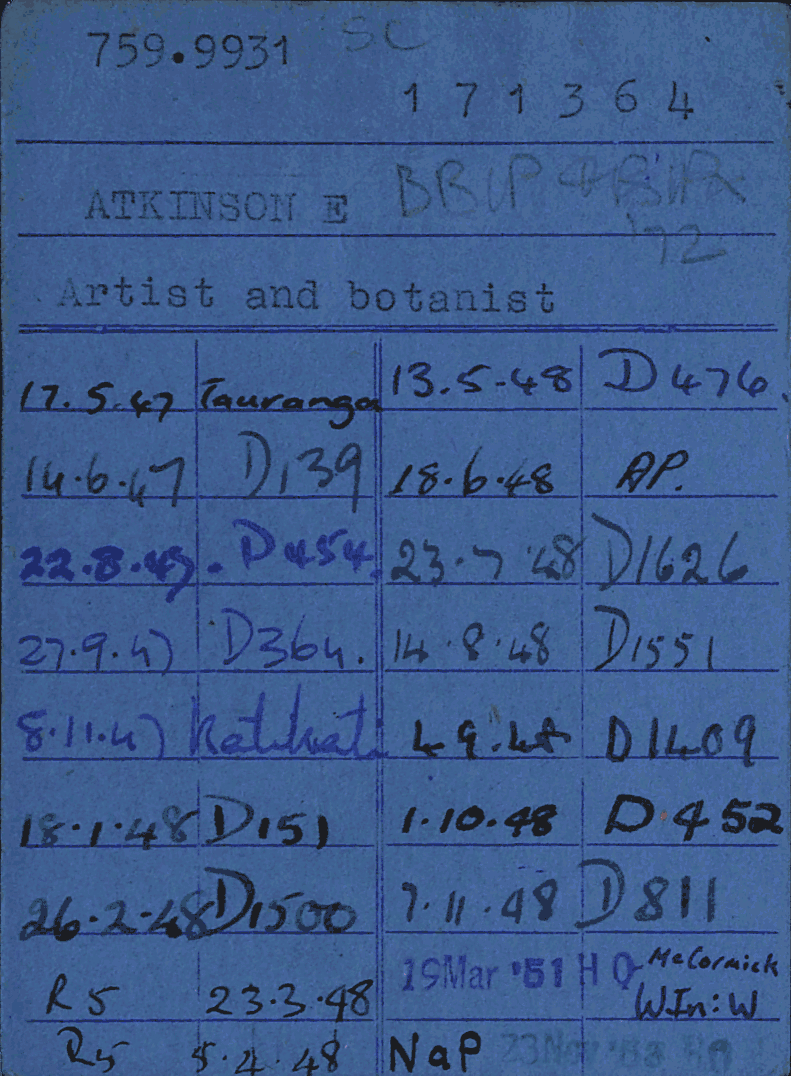 759.9931 SC
171364
ATKINSON E
'72
Artist and botanist
17.5.47 Tauranga
14.6.47 D139
22.8.47. D454.
27.9.47 D364.
8.11.47 Katikati
18.1.48 D151
26.2.48 D1500
R5 23.3.48
R5 5.4.48
13.5.48 D476.
18.6.48 AP.
23.7.48 D1626
14.8.48 D1551
4 9.48 D1409
1.10.48 D452
7.11.48 D811
19Mar '51 HQ McCormick
WIn:W
NaP 23Nov